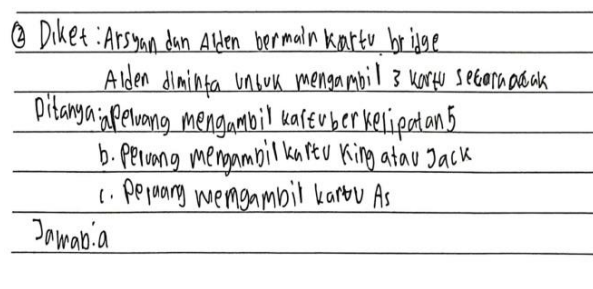 ② Diket : Arsyan dan Alden bermain kartu bridge
Alden diminta untuk mengambil 3 kartu secara acak
Ditanya : a Peluang mengambil kartu berkelipatan 5
b. Peluang mengambil kartu King atau Jack
c. Peluang mengambil kartu As
Jawab : a